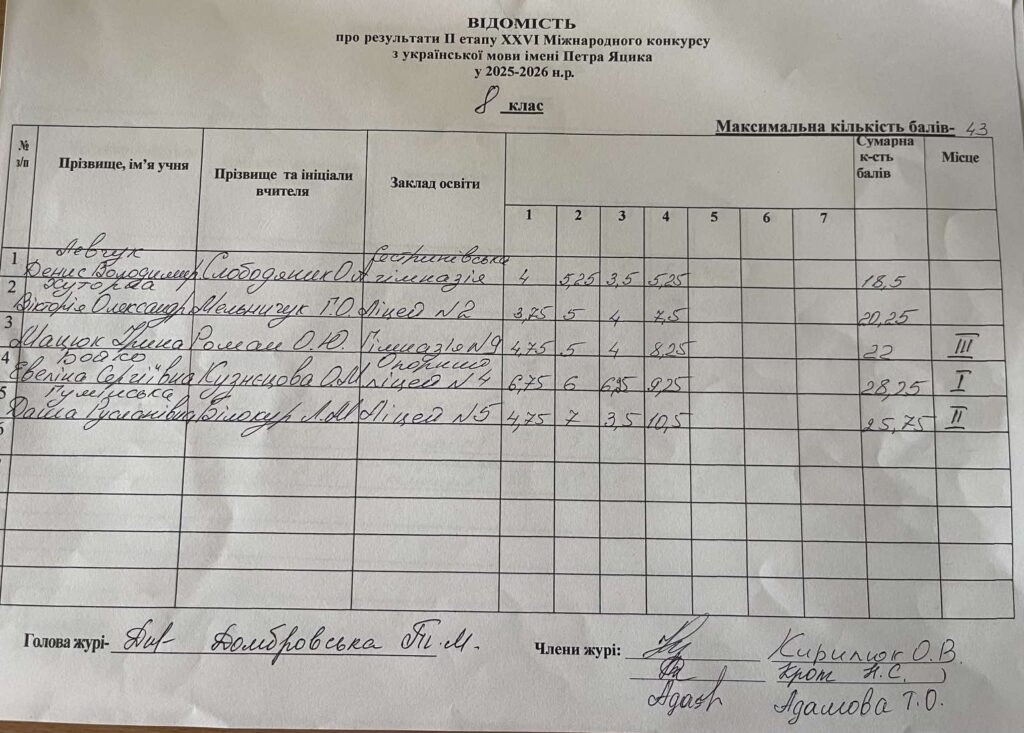 ВІДОМІСТЬ
про результати ІІ етапу XXVI Міжнародного конкурсу
з української мови імені Петра Яцика
у 2025-2026 н.р.
8 клас
Максимальна кількість балів- 43
№ з/п Прізвище, ім’я учня Прізвище та ініціали вчителя Заклад освіти 1 2 3 4 5 6 7 Сумарна к-сть балів Місце
1 Левчук Денис Володимир Слободяник О.А гімназія 4 5,25 3,5 5,25 18,5
2 Хуторна Вікторія Олександр Мельничук Г.О. Ліцей №2 3,75 5 4 7,5 20,25
3 Мацюк Ірина Роман О.Ю. Гімназія №9 4,75 5 4 8,25 22 III
4 Бойко Евеліна Сергіївна Кузнєцова О.М Опорний ліцей №4 6,75 6 6,25 9,25 28,25 I
5 Даша Русланівна Білокур Л.М. Ліцей №5 4,75 7 3,5 10,5 25,75 II
6
Голова журі- Домбровська
Члени журі: Кирилюк О.В.
Крот Н.С.
Адамова Т.О.